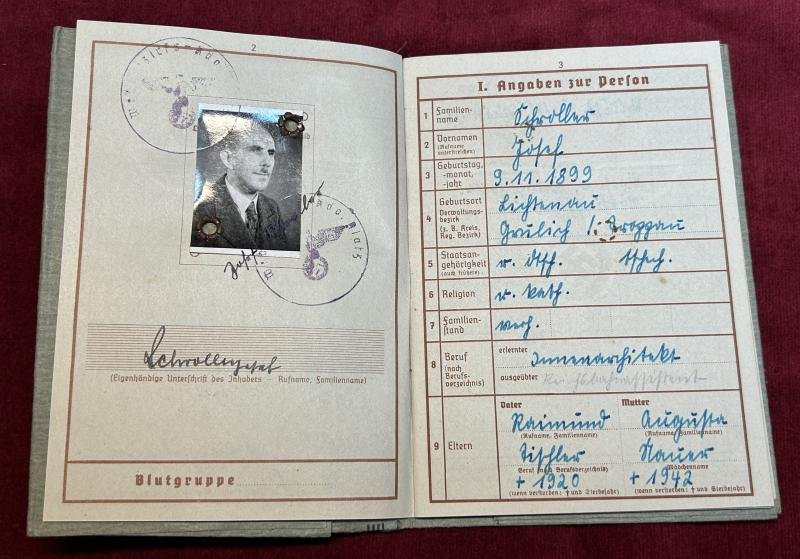 2
Schrollerjosef
(Eigenhändige Unterschrift des Inhabers — Rufname, Familienname)
Blutgruppe
3
I. Angaben zur Person
1 Familien-
name Schroller
2 Vornamen
(Rufname
unterstreichen) Josef
3 Geburtstag,
-monat,
-jahr 9.11.1899
4 Geburtsort Lichtenau
Verwaltungs-
bezirk
(z. B. Kreis,
Reg. Bezirk) Grulich /: Troppau
5 Staatsan-
gehörigkeit
(auch frühere) r. dtsch. tschech.
6 Religion r. kath.
7 Familien-
stand verh.
8 Beruf
(nach
Berufs-
verzeichnis)
erlernter Innenarchitekt
ausgeübter Reichsbahnassistent
9 Eltern
Vater Mutter
Raimund Augusta
(Rufname, Familienname) (Rufname, Familienname)
Tischler Mauer
Beruf (nach Berufsverzeichnis) Mädchenname
+ 1920 + 1942
(wenn verstorben: † und Sterbejahr) (wenn verstorben: † und Sterbejahr)